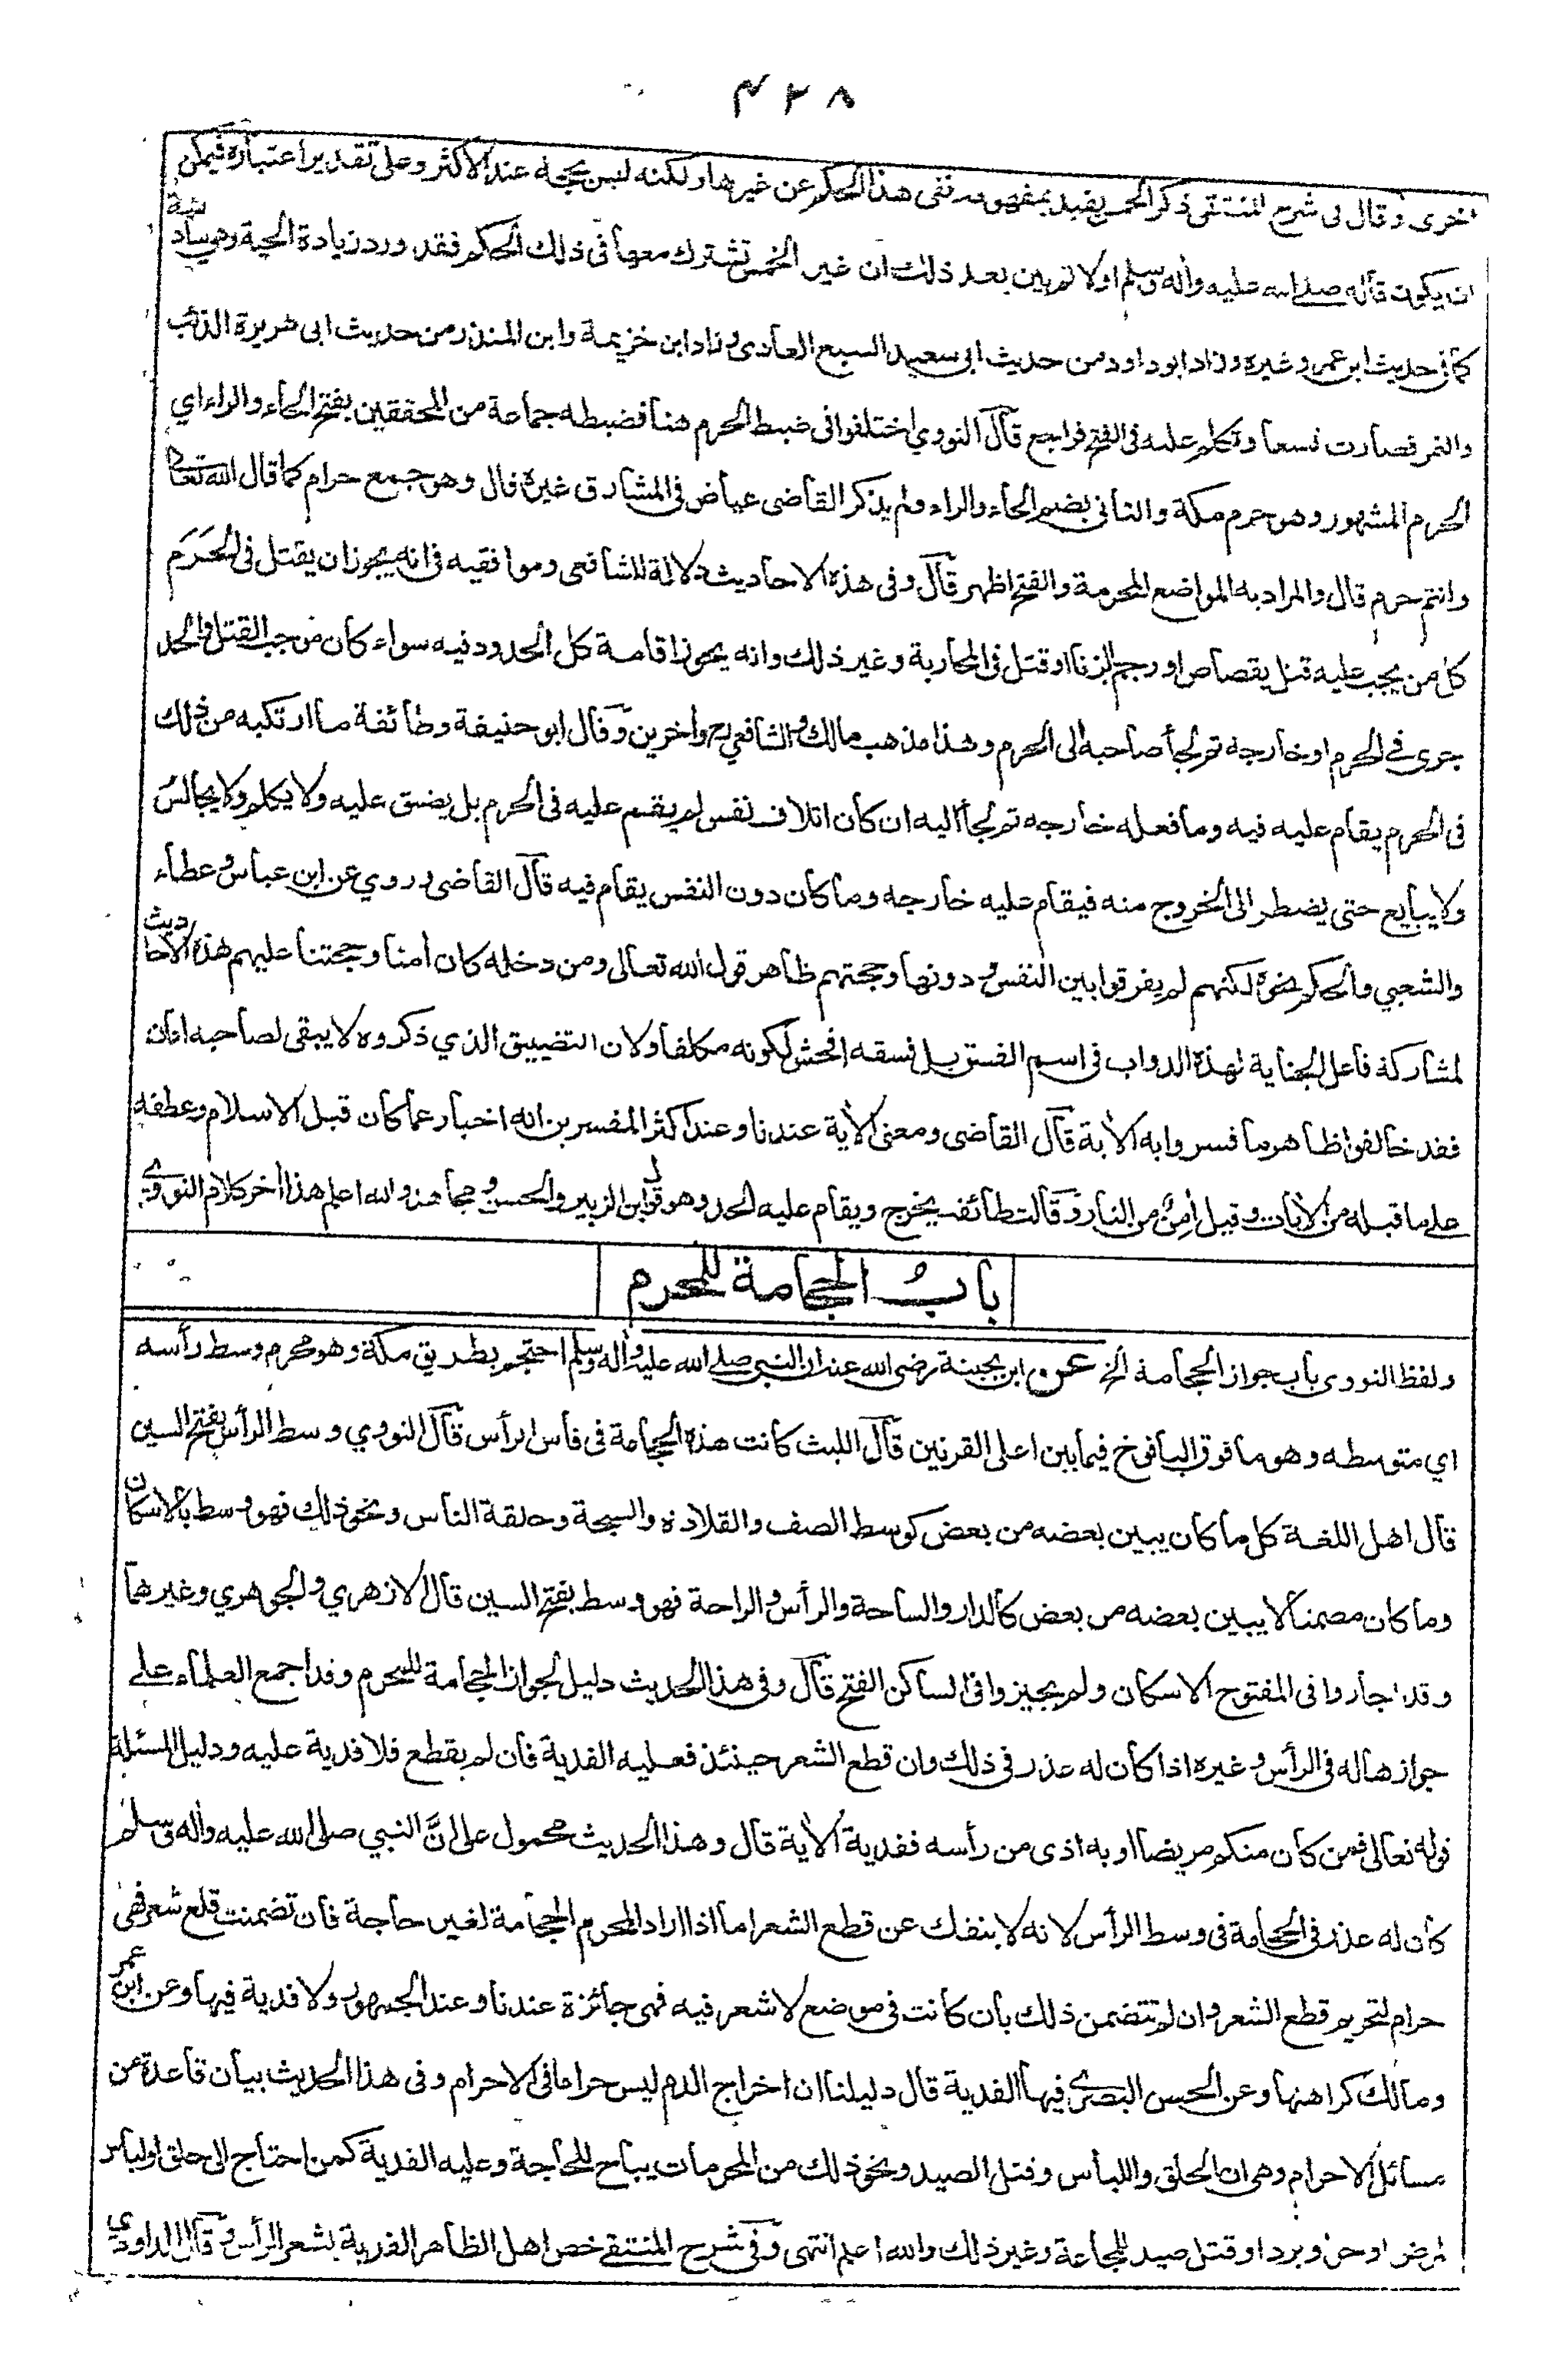 ٤٢٨
اخرى وقال فى شرح المنتقى ذكر الخمس يفيد بمفهومه نفى هذا الحكم عن غيرها ولكنه ليس بحجة عند الاكثر وعلى تقدير اعتباره فيمكن
ان يكون قاله صلى الله عليه واله وسلم اولا ثم بين بعد ذلك ان غير الخمس تشترك معها فى ذلك الحكم فقد ورد زيادة الحية وهى سادسة
كما فى حديث ابن عمر وغيره وزاد ابو داود من حديث ابى سعيد السبع العادى وزاد ابن خزيمة وابن المنذر من حديث ابى هريرة الذئب
والنمر فصارت تسعا وتكلم عليه فى الفتح فراجع قال النووي اختلفوا فى ضبط الحرم هنا فضبطه جماعة من المحققين بفتح الحاء والراء اي
الحرم المشهور وهو حرم مكة والثانى بضم الحاء والراء ولم يذكر القاضى عياض فى المشارق غيره قال وهو جمع حرام كما قال الله تعالى
وانتم حرم قال والمراد به المواضع المحرمة والفتح اظهر قال وفى هذه الاحاديث دلالة للشافعى وموافقيه فى انه يجوز ان يقتل فى الحَرَم
كل من يجب عليه قتل بقصاص او رجم بالزنا او قتل فى المحاربة وغير ذلك وانه يجوز اقامة كل الحدود فيه سواء كان موجب القتل والحد
جرى فى الحرم او خارجه ثم لجأ صاحبه الى الحرم وهذا مذهب مالك والشافعي رح واخرين وقال ابو حنيفة وطائفة ما ارتكبه من ذلك
فى الحرم يقام عليه فيه وما فعله خارجه ثم لجأ اليه ان كان اتلاف نفس لم يقم عليه فى الحرم بل يضيق عليه ولا يكلم ولا يجالس
ولا يبايع حتى يضطر الى الخروج منه فيقام عليه خارجه وما كان دون النفس يقام فيه قال القاضى وروي عن ابن عباس وعطاء
والشعبي والحكم نحوه لكنهم لم يفرقوا بين النفس ودونها وحجتهم ظاهر قول الله تعالى ومن دخله كان امنا وحجتنا عليهم هذه الاحاديث
لمشاركة فاعل الجناية لهذه الدواب فى اسم الفسق بل فسقه افحش لكونه مكلفا ولان التضييق الذي ذكروه لا يبقى لصاحبه امان
فقد خالفوا ظاهر ما فسروا به الأية قال القاضى ومعنى الأية عندنا وعند اكثر المفسرين انه اخبار عما كان قبل الاسلام وعطفه
على ما قبله من الأيات وقيل أمِنٌ من النار وقالت طائفة يخرج ويقام عليه الحد وهو قول ابن الزبير والحسن ومجاهد والله اعلم هذا أخر كلام النووي
باب الحجامة للمحرم
ولفظ النووى باب جواز الحجامة الخ عن ابن بحينة رضى الله عنه ان النبى صلى الله عليه واله وسلم احتجم بطريق مكة وهو محرم وسط رأسه
اي متوسطه وهو ما فوق اليافوخ فيما بين اعلى القرنين قال الليث كانت هذه الحجامة فى فأس الرأس قال النووي وسط الرأس بفتح السين
قال اهل اللغة كل ما كان يبين بعضه من بعض كوسط الصف والقلادة والسبحة وحلقة الناس ونحو ذلك فهو وسط بالاسكان
وما كان مصمتا لا يبين بعضه من بعض كالدار والساحة والرأس والراحة فهو وسط بفتح السين قال الازهري والجوهري وغيرهما
وقد اجازوا فى المفتوح الاسكان ولم يجيزوا فى الساكن الفتح قال وفى هذا الحديث دليل لجواز الحجامة للمحرم وقد اجمع العلماء على
جوازها له فى الرأس وغيره اذا كان له عذر فى ذلك وان قطع الشعر حينئذ فعليه الفدية فان لم يقطع فلا فدية عليه ودليل المسئلة
قوله تعالى فمن كان منكم مريضا او به اذى من رأسه ففدية الأية قال وهذا الحديث محمول على انَّ النبي صلى الله عليه واله وسلم
كان له عذر فى الحجامة فى وسط الرأس لانه لا ينفك عن قطع الشعر اما اذا اراد المحرم الحجامة لغير حاجة فان تضمنت قلع شعر فهى
حرام لتحريم قطع الشعر وان لم تتضمن ذلك بان كانت فى موضع لا شعر فيه فهى جائزة عندنا وعند الجمهور ولا فدية فيها وعن ابن عمر
ومالك كراهتها وعن الحسن البصرى فيها الفدية قال دليلنا ان اخراج الدم ليس حراما فى الاحرام وفى هذا الحديث بيان قاعدة من
مسائل الاحرام وهى ان الحلق واللباس وقتل الصيد ونحو ذلك من المحرمات يباح للحاجة وعليه الفدية كمن احتاج الى حلق او لباس
لمرض او حر او برد او قتل صيد للمجاعة وغير ذلك والله اعلم انتهى وفى شرح المنتقى خص اهل الظاهر الفدية بشعر الرأس وقال الداودي